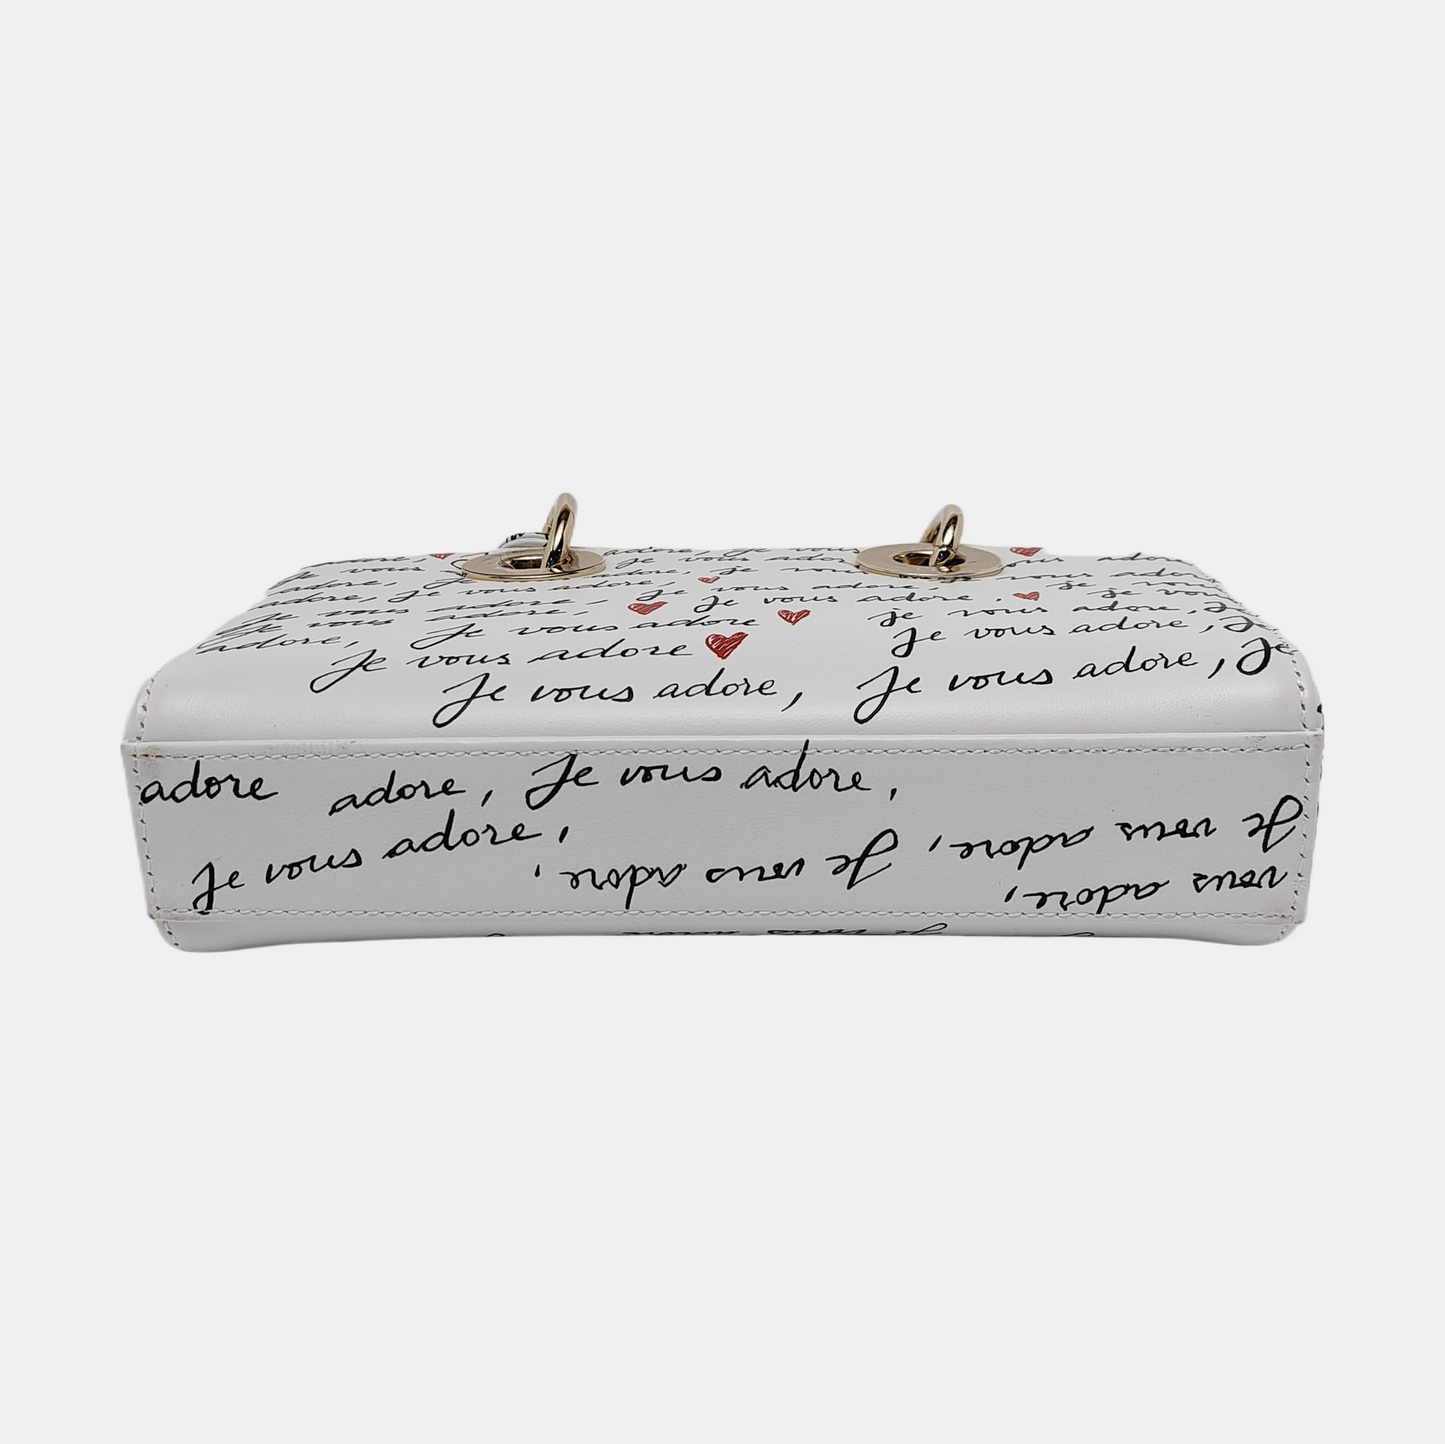 adore, adore, je vous
je vous je vous je vous adore
adore, je vous adore, je vous adore
adore, je vous adore, je vous adore, je vous
je vous adore, je vous adore, je vous
je vous adore je vous adore, je
adore, je vous adore, Je
Je vous adore
Je vous adore, Je vous adore, Je
adore adore, Je vous adore,
Je vous adore,
Je vous adore, Je vous adore,
vous adore,
je vous adore